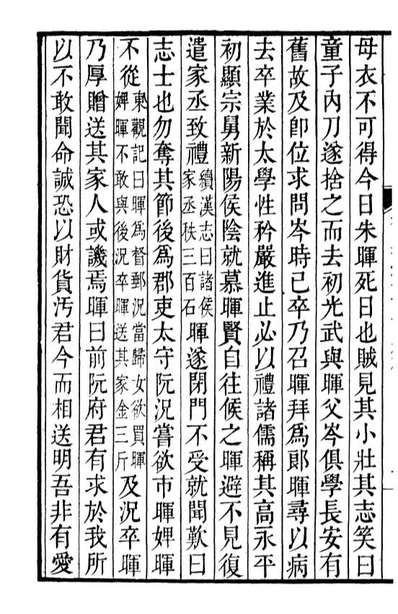 母衣不可得今日朱暉死日也賊見其小壯其志笑曰
童子內刀遂捨之而去初光武與暉父岑俱學長安有
舊故及卽位求問岑時已卒乃召暉拜爲郎暉尋以病
去卒業於太學性矜嚴進止必以禮諸儒稱其高永平
初顯宗舅新陽侯陰就慕暉賢自往候之暉避不見復
遣家丞致禮續漢志曰諸侯家丞秩三百石暉遂閉門不受就聞歎曰
志士也勿奪其節後爲郡吏太守阮況嘗欲市暉婢暉
不從東觀記曰暉爲督郵況當歸女欲買暉婢暉不敢與後況卒暉送其家金三斤及況卒暉
乃厚贈送其家人或譏焉暉曰前阮府君有求於我所
以不敢聞命誠恐以財貨汚君今而相送明吾非有愛